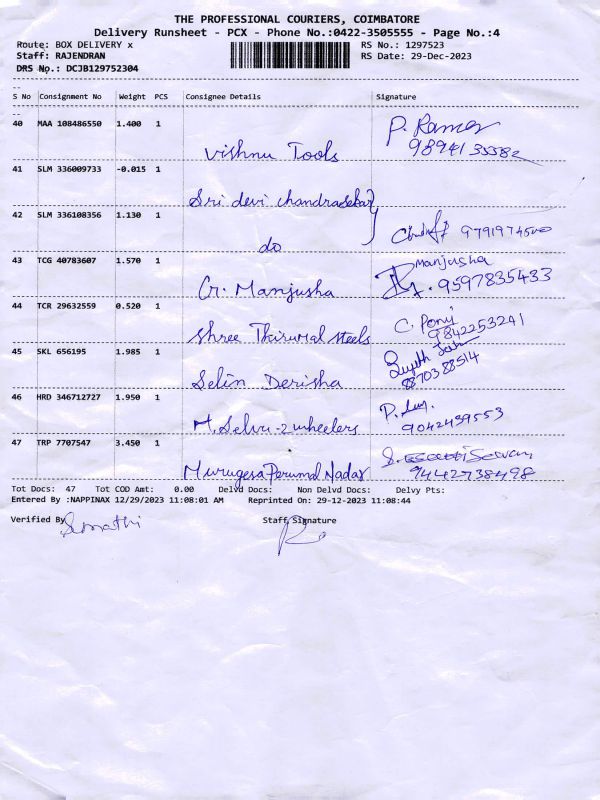 THE PROFESSIONAL COURIERS, COIMBATORE
Delivery Runsheet - PCX - Phone No.:0422-3505555 - Page No.:4
Route: BOX DELIVERY x RS No.: 1297523
Staff: RAJENDRAN RS Date: 29-Dec-2023
DRS No.: DCJB129752304
S No Consignment No Weight PCS Consignee Details Signature
40 MAA 108486550 1.400 1 Vishnu Tools P. Raman
9894135582
41 SLM 336009733 -0.015 1 Sri devi chandrasekar
42 SLM 336108356 1.130 1 do 9791974500
43 TCG 40783607 1.570 1 G. Manjusha Manjusha
9597835433
44 TCR 29632559 0.520 1 Shree Thirumal Steels C. Ponj
9842253241
45 SKL 656195 1.985 1 Selin Derisha
8870388514
46 HRD 346712727 1.950 1 M. Selvu-2 wheelers P.
9042439553
47 TRP 7707547 3.450 1 Murugesa Perumal Nadar S.
9442738498
Tot Docs: 47 Tot COD Amt: 0.00 Delvd Docs: Non Delvd Docs: Delvy Pts:
Entered By :NAPPINAX 12/29/2023 11:08:01 AM Reprinted On: 29-12-2023 11:08:44
Verified By Sumathi Staff Signature